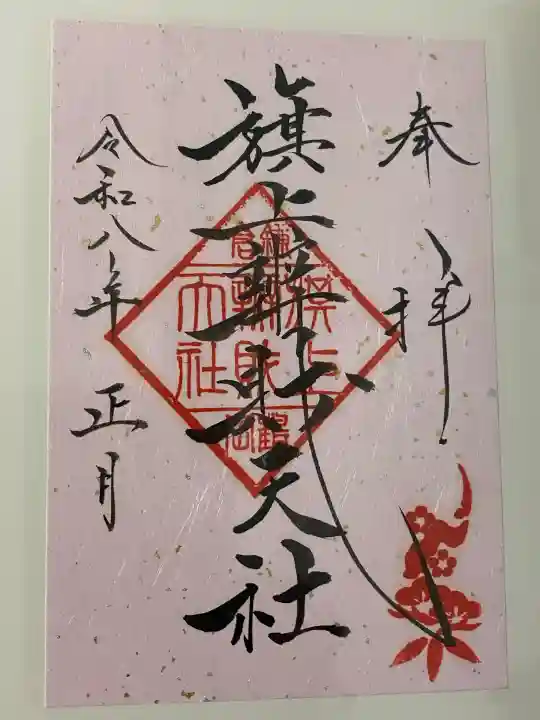 奉拝
旗上弁財天社
鎌倉
旗上
弁財
天社
鶴岡
令和八年正月